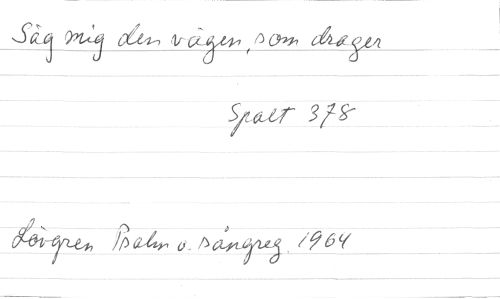 Säg mig den vägen, som drager
Spalt 378
Lövgren Psalm o. sångreg. 1964